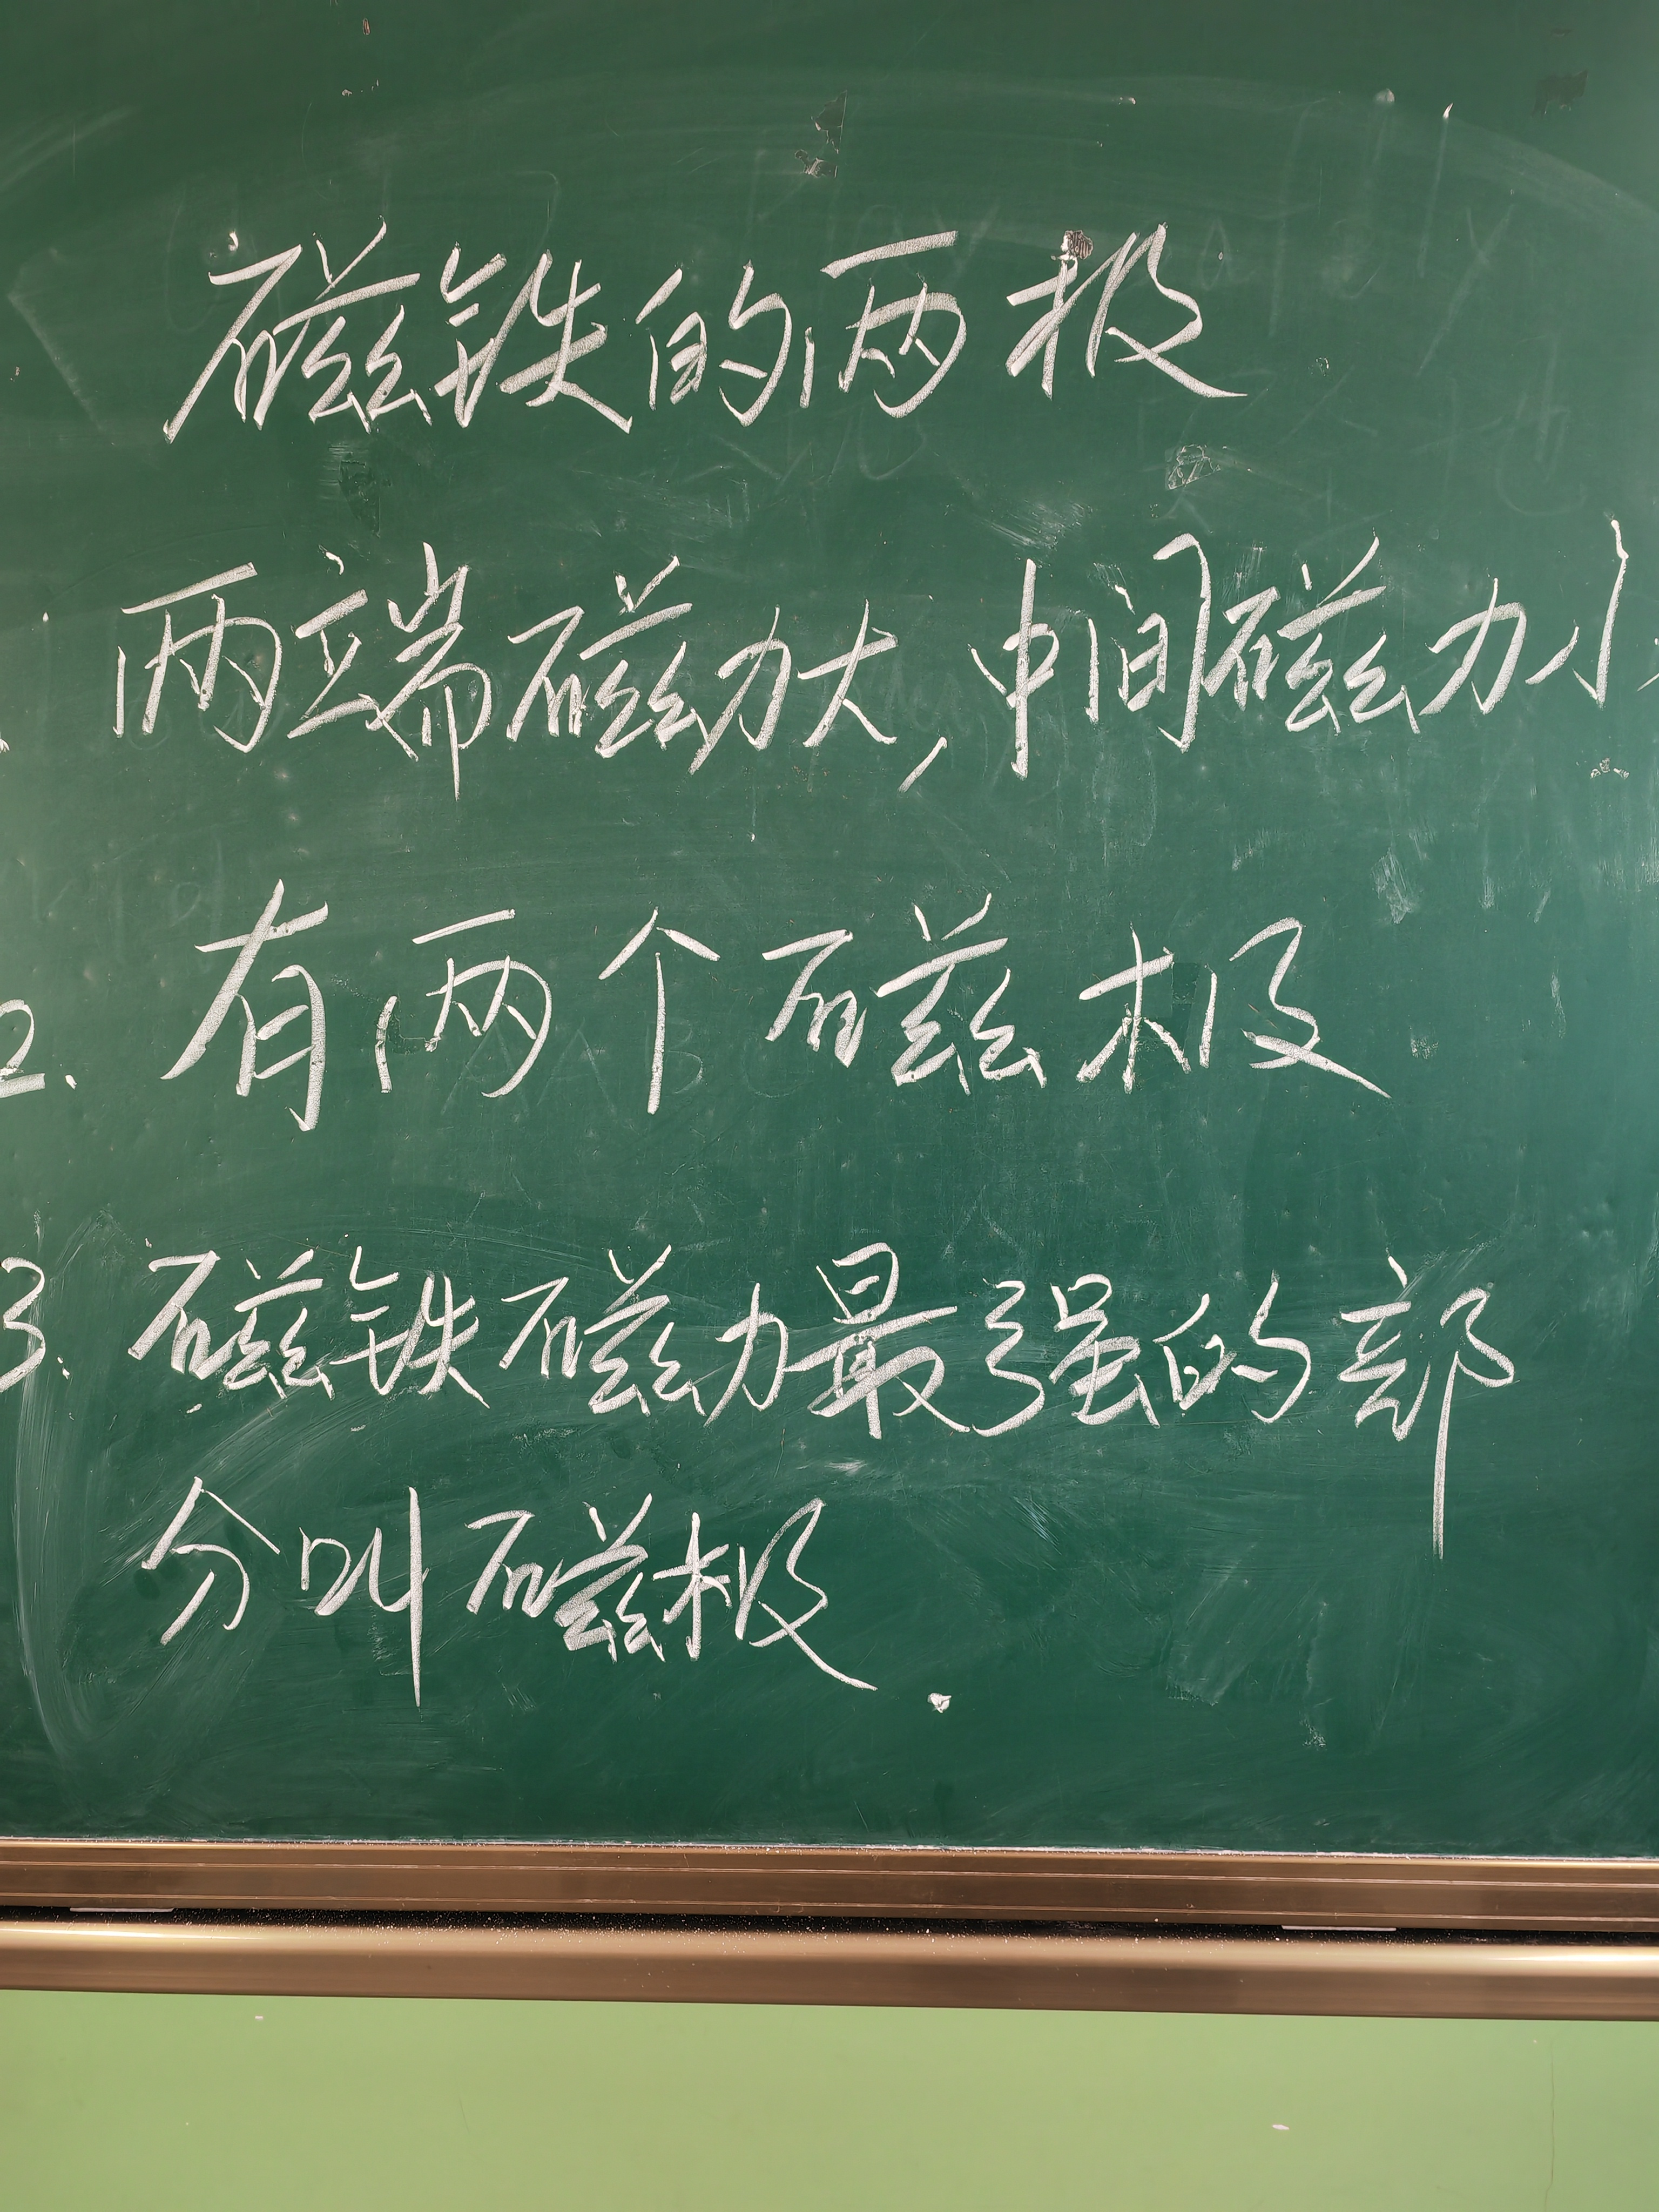 磁铁的两极
. 两端磁力大,中间磁力小.
2. 有两个磁极
3. 磁铁磁力最强的部
分叫磁极.